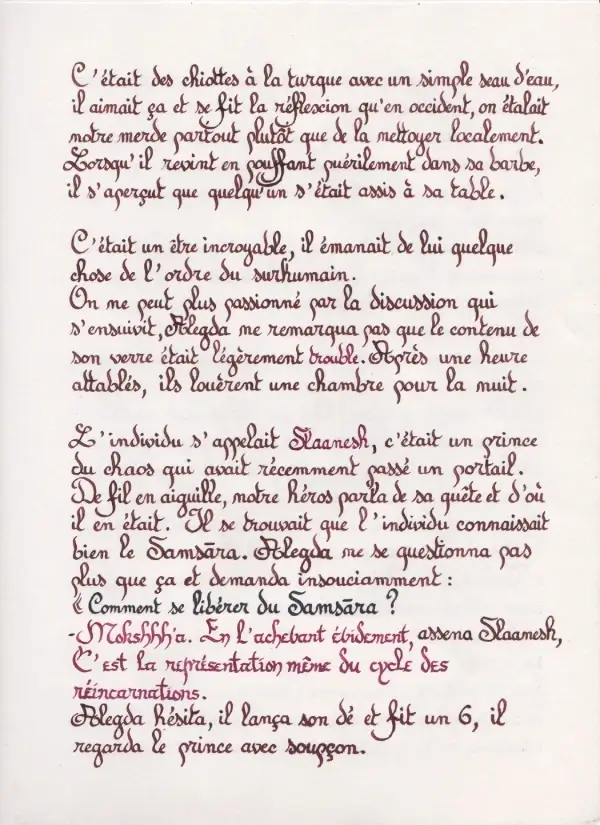 C'était des chiottes à la turque avec un simple seau d'eau,
il aimait ça et se fit la réflexcion qu'en occident, on étalait
notre merde partout plutôt que de la nettoyer localement.
Lorsqu'il revint en pouffant puérilement dans sa barbe,
il s'aperçut que quelqu'un s'était assis à sa table.
C'était un être incroyable, il émanait de lui quelque
chose de l'ordre du surhumain.
On ne peut plus passionné par la discussion qui
s'ensuivit, Alegda ne remarqua pas que le contenu de
son verre était légèrement trouble. Après une heure
attablés, ils louèrent une chambre pour la nuit.
L'individu s'appelait Slaanesh, c'était un prince
du chaos qui avait récemment passé un portail.
De fil en aiguille, notre héros parla de sa quête et d'où
il en était. Il se trouvait que l'individu connaissait
bien le Samsāra. Alegda ne se questionna pas
plus que ça et demanda insouciamment :
« Comment se libérer du Samsāra ?
-Mokshhh'a. En l'achevant évidement, assena Slaanesh,
C'est la représentation même du cycle des
réincarnations.
Alegda hésita, il lança son dé et fit un 6, il
regarda le prince avec soupçon.